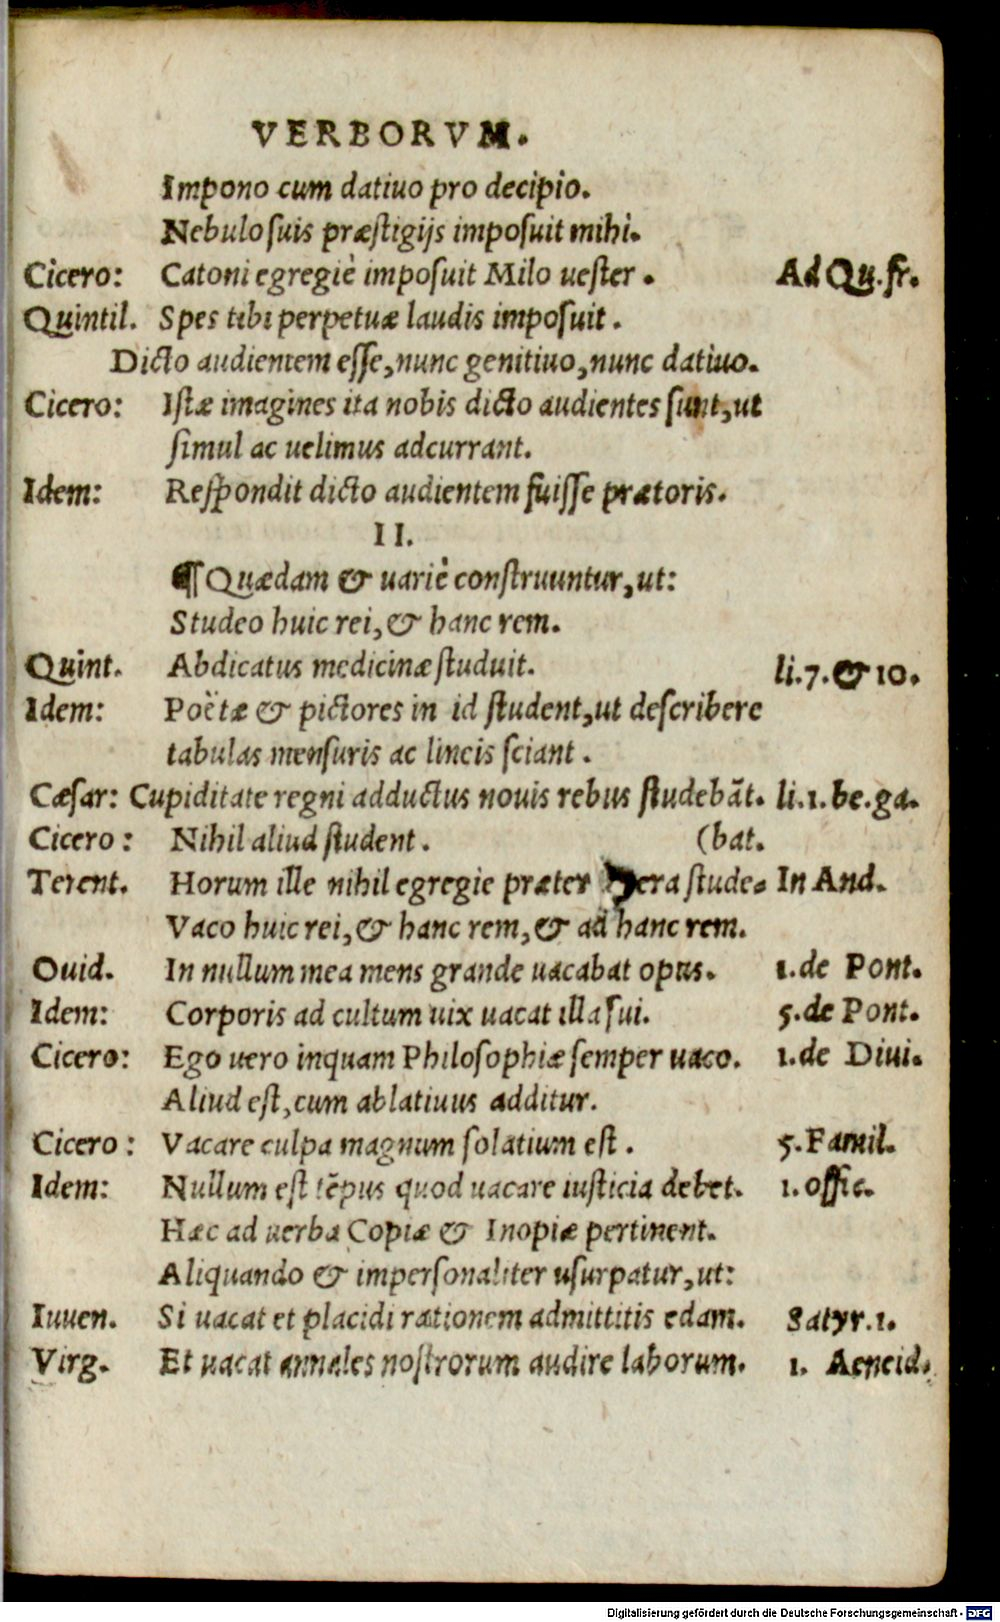 VERBORVM.
Impono cum datiuo pro decipio.
Nebulo suis præstigijs imposuit mihi.
Cicero: Catoni egregiè imposuit Milo uester. Ad Qu. fr.
Quintil. Spes tibi perpetuæ laudis imposuit.
Dicto audientem esse, nunc genitiuo, nunc datiuo.
Cicero: Istæ imagines ita nobis dicto audientes sunt, ut
simul ac uelimus adcurrant.
Idem: Respondit dicto audientem fuisse prætoris.
II.
¶ Quædam & uariè construuntur, ut:
Studeo huic rei, & hanc rem.
Quint. Abdicatus medicinæ studuit. li. 7. & 10.
Idem: Poëtæ & pictores in id student, ut describere
tabulas mensuris ac lineis sciant.
Cæsar: Cupiditate regni adductus nouis rebus studebāt. li. 1. be. ga.
Cicero: Nihil aliud student. (bat.
Terent. Horum ille nihil egregie præter stude= In And.
Vaco huic rei, & hanc rem, & ad hanc rem.
Ouid. In nullum mea mens grande uacabat opus. 1. de Pont.
Idem: Corporis ad cultum uix uacat illa sui. 5. de Pont.
Cicero: Ego uero inquam Philosophiæ semper uaco. 1. de Diui.
Aliud est, cum ablatiuus additur.
Cicero: Vacare culpa magnum solatium est. 5. Famil.
Idem: Nullum est tēpus quod uacare iusticia debet. 1. offic.
Hæc ad uerba Copiæ & Inopiæ pertinent.
Aliquando & impersonaliter usurpatur, ut:
Iuuen. Si uacat et placidi rationem admittitis edam. Satyr. 1.
Virg. Et uacat annales nostrorum audire laborum. 1. Aeneid.
Digitalisierung gefördert durch die Deutsche Forschungsgemeinschaft - DFG